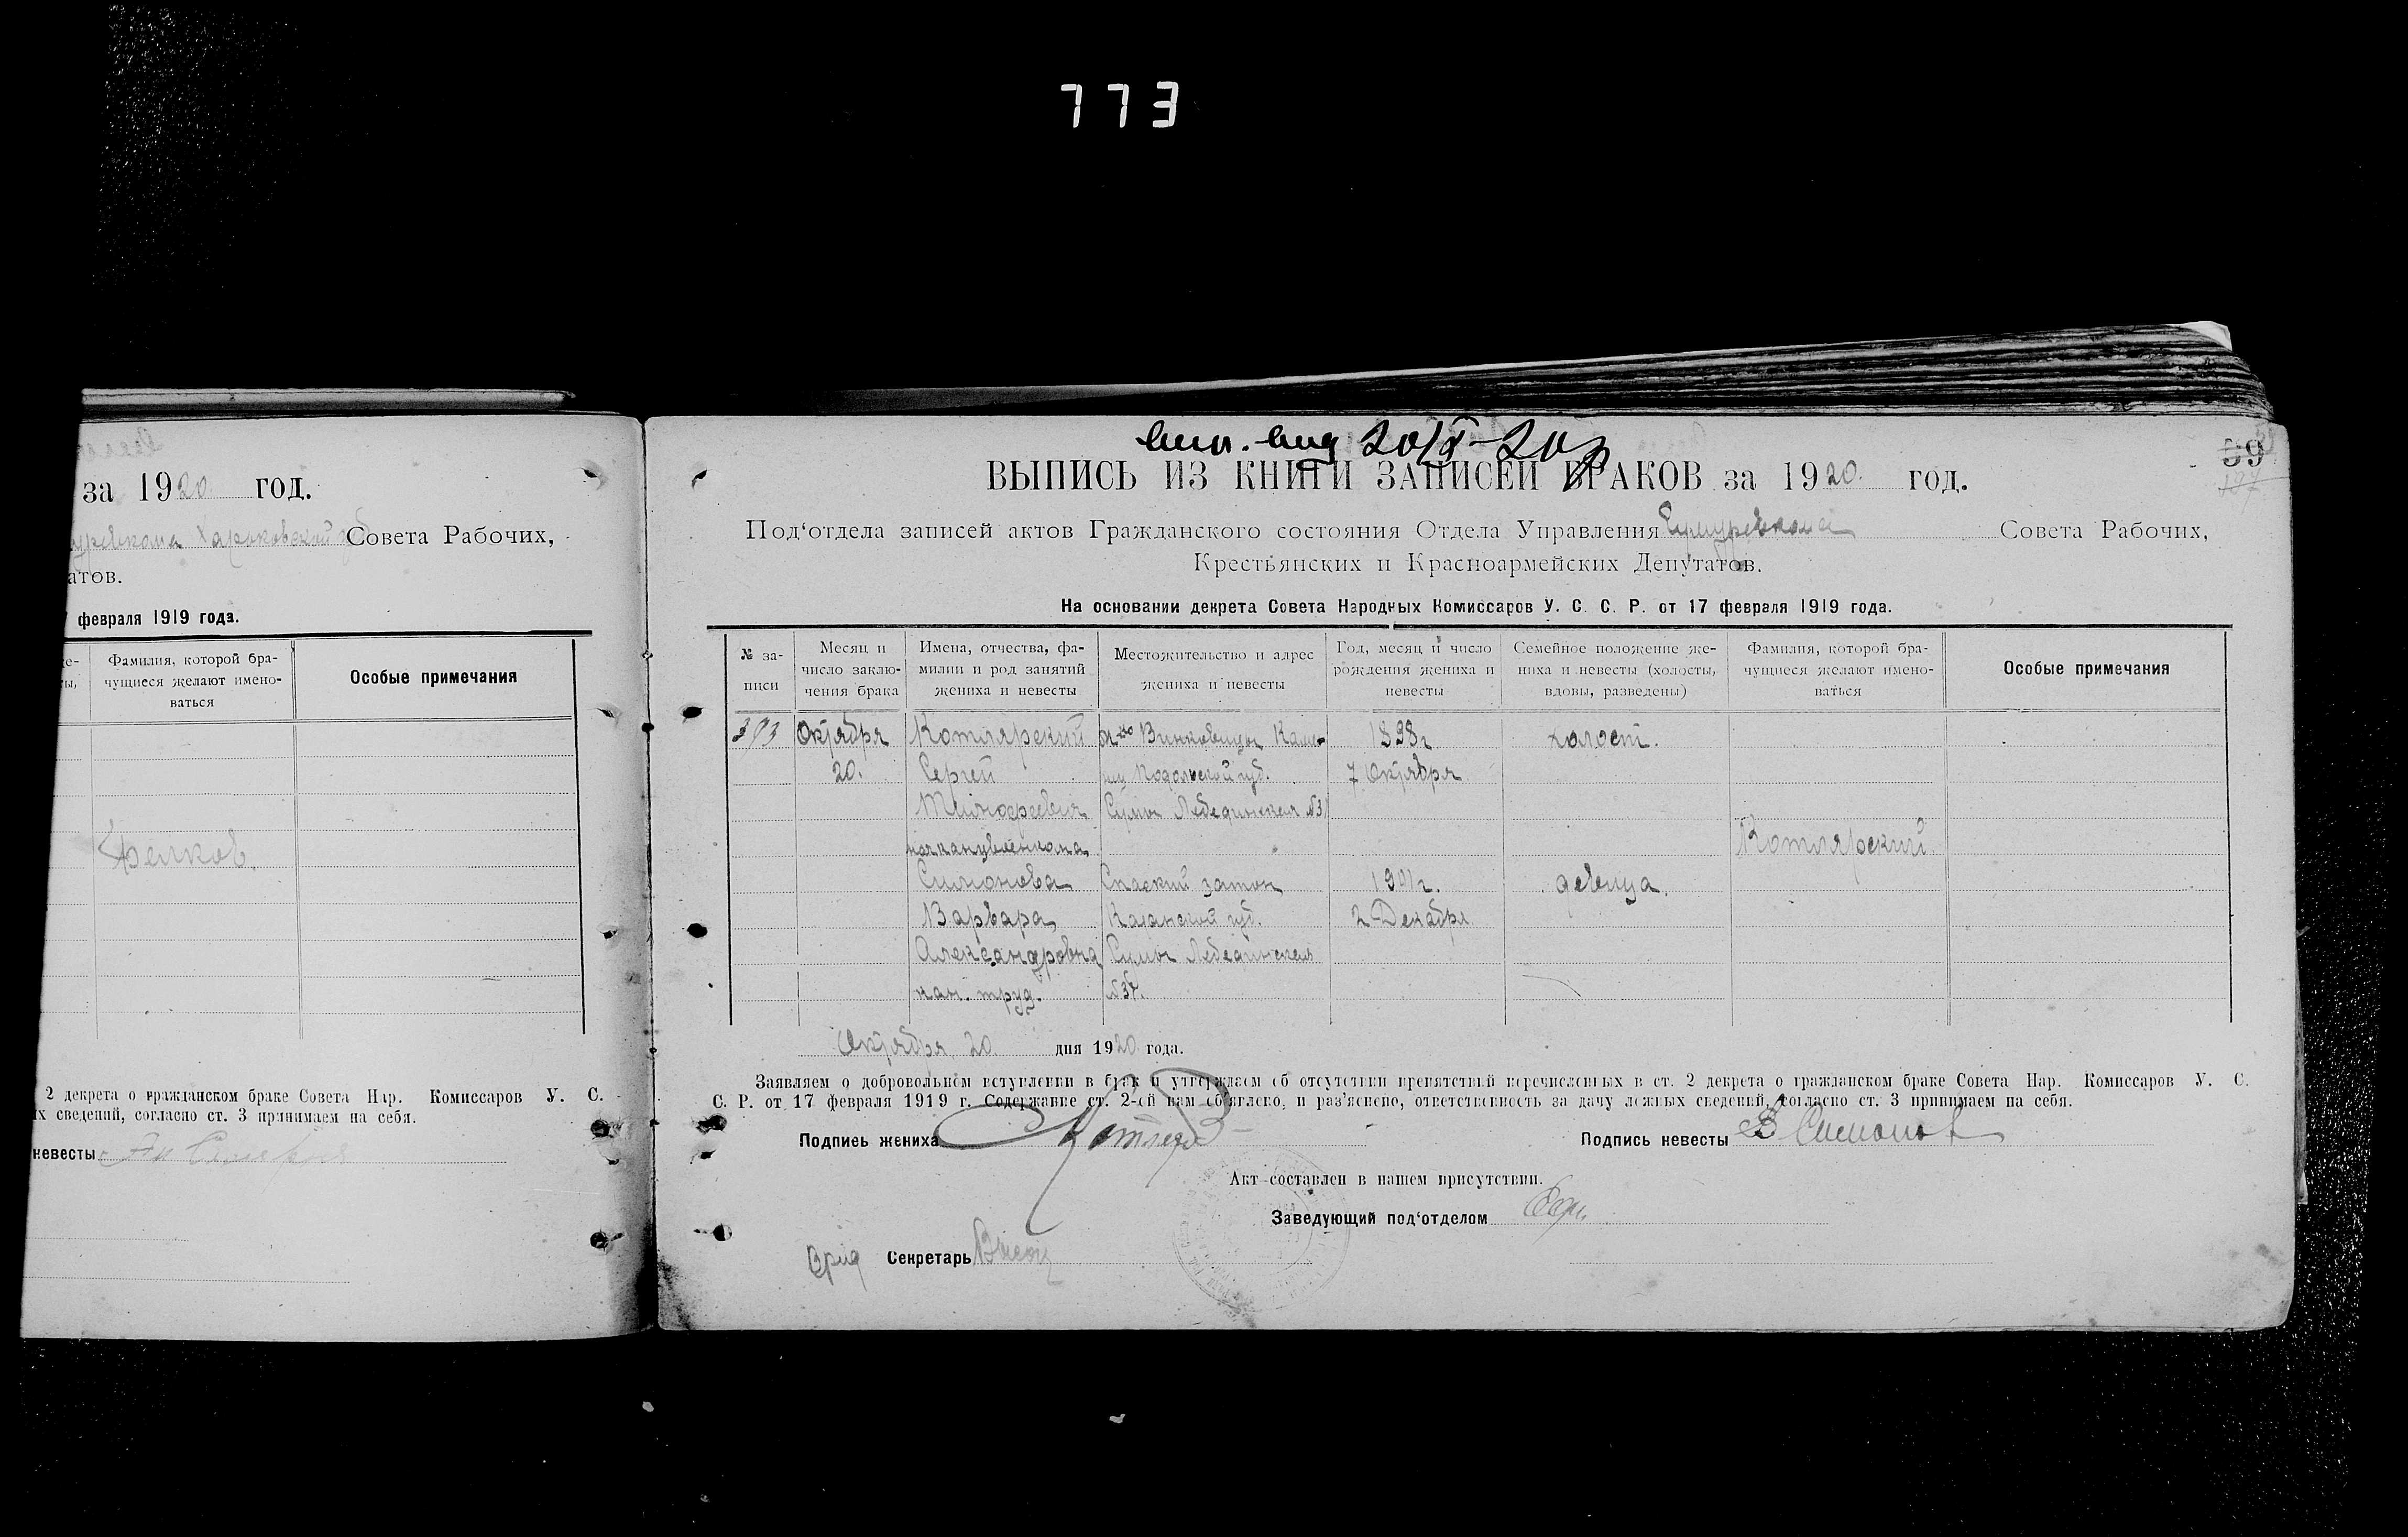 773
за 1920 год.
Харьковской Совета Рабочих,
атов.
февраля 1919 года.
Фамилия, которой бра-
чущиеся желают имено-
ваться
Особые примечания
2 декрета о гражданском браке Совета Нар. Комиссаров У. С.
их сведений, согласно ст. 3 принимаем на себя.
невесты
20/X-20
59
ВЫПИСЬ ИЗ КНИГИ ЗАПИСЕЙ БРАКОВ за 1920 год.
Под'отдела записей актов Гражданского состояния Отдела Управления Сумуревкома Совета Рабочих,
Крестьянских и Красноармейских Депутатов.
На основании декрета Совета Народных Комиссаров У. С. С. Р. от 17 февраля 1919 года.
№ за-
писи
Месяц и
число заклю-
чения брака
Имена, отчества, фа-
милии и род занятий
жениха и невесты
Местожительство и адрес
жениха и невесты
Год, месяц и число
рождения жениха и
невесты
Семейное положение же-
ниха и невесты (холосты,
вдовы, разведены)
Фамилия, которой бра-
чущиеся желают имено-
ваться
Особые примечания
303 Октября Котлярский Винковцы 1898г холост.
20. Сергей Подольской губ. 7 Октября
Тимофеевич Сумы Лебединская
Котлярский
Симонова Спаский затон 1901г. девица.
Варвара Казанской губ. 2 Декабря
Александровна Сумы Лебединская
кан. труд.
Октября 20 дня 1920 года.
Заявляем о добровольном вступлении в брак и утверждаем об отсутствии препятствий перечисленных в ст. 2 декрета о гражданском браке Совета Нар. Комиссаров У. С.
С. Р. от 17 февраля 1919 г. Содержание ст. 2-ой нам об'явлено, и раз'яснено, ответственность за дачу ложных сведений, согласно ст. 3 принимаем на себя.
Подпись жениха
Подпись невесты В Симонов
Акт составлен в нашем присутствии.
Заведующий под'отделом
Врид Секретарь